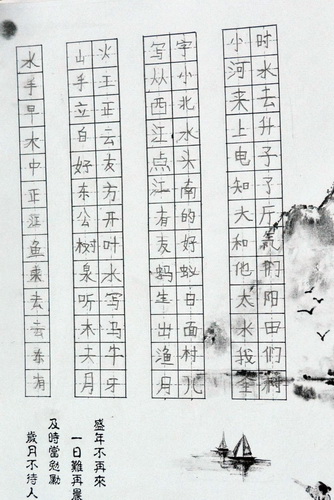 时水去升子了斤们阳田们村
小河来上电知大和他太水我全
宇小北水头南的好蚁日面村儿
写从西江点江有友蚂生出渔月
火王正云友方开叶水写马牛牙
山手立白好东公树泉听木去月
水手早木中正鱼来去去东有
盛年不再來
一日難再晨
及時當勉勵
歲月不待人